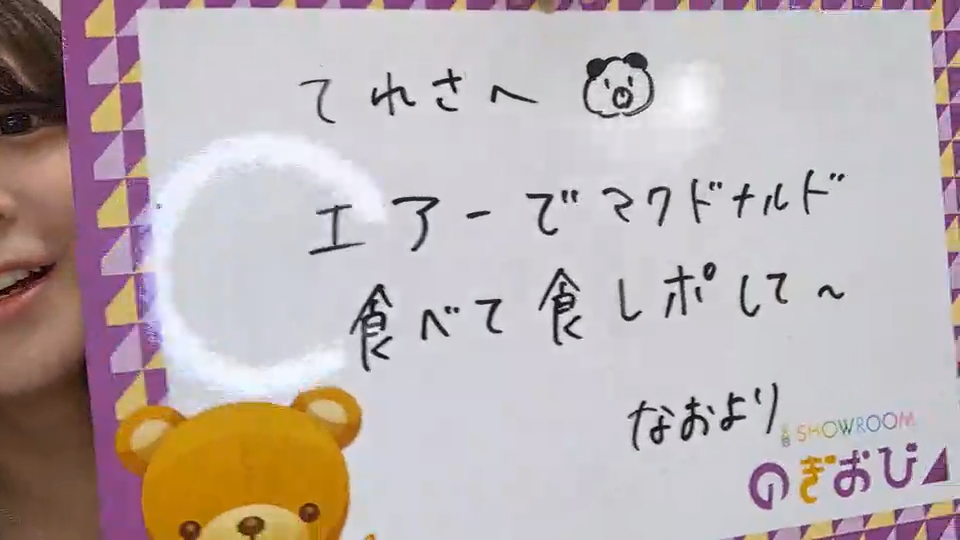 てれさへ
エアーでマクドナルド
食べて食レポして～
なおより
SHOWROOM
のぎおび